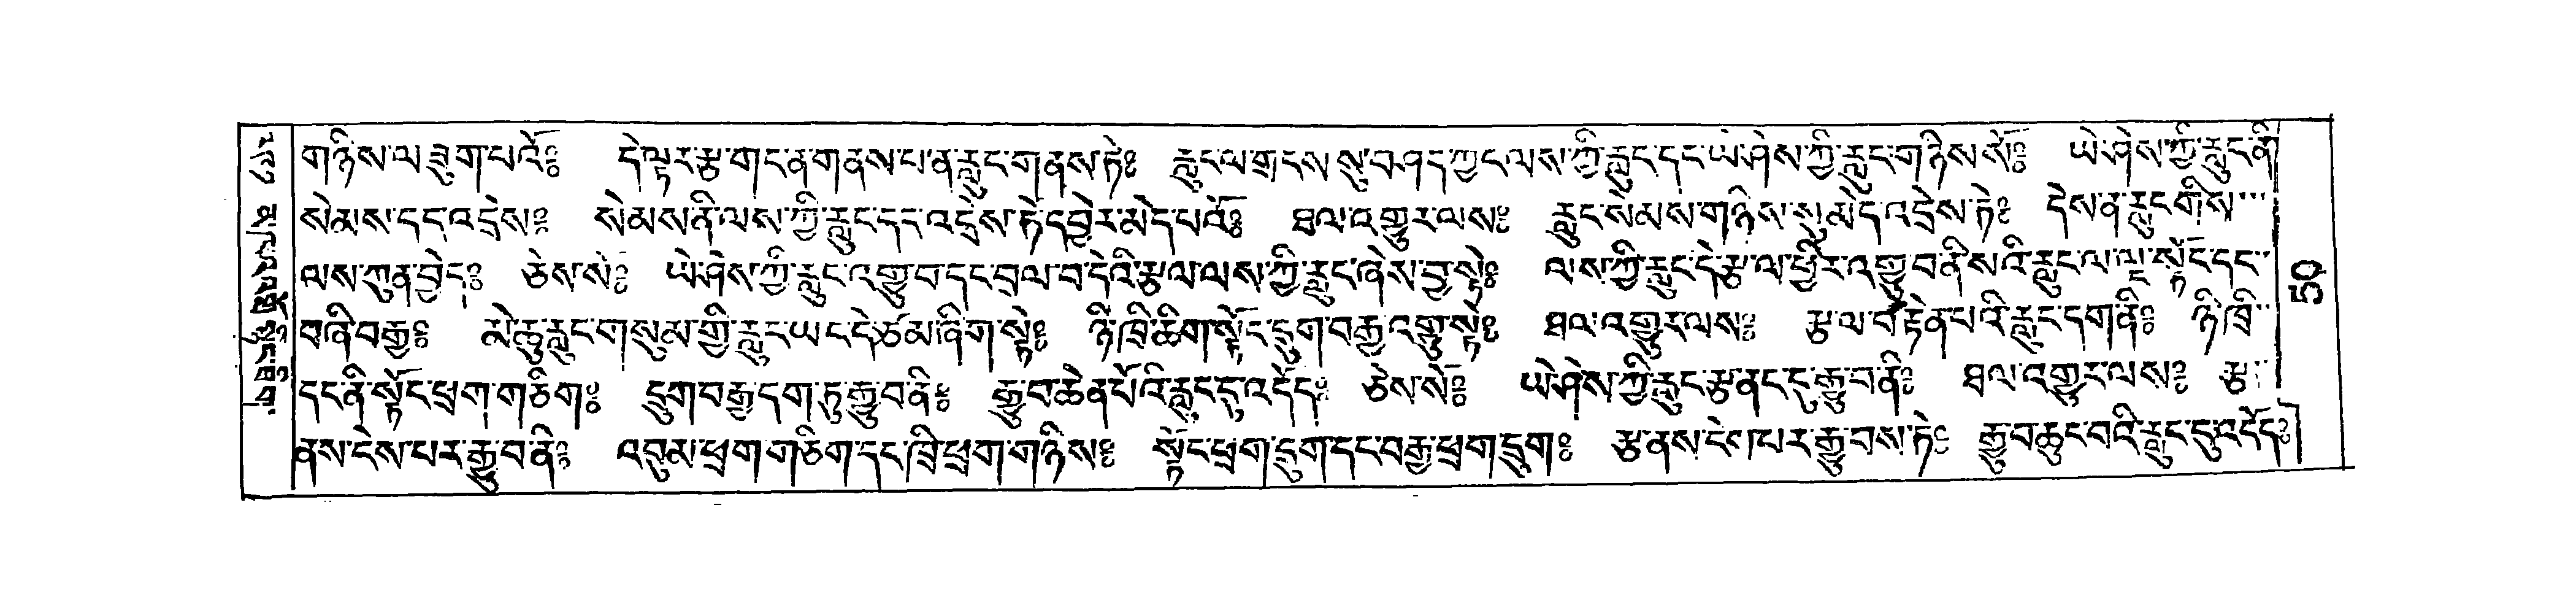 གཉིས་ལ་ཟུག་པའོ༔ དེ་ལྟར་རྩ་གང་ན་གནས་པ་ན་རླུང་གནས་ཏེ༔ རླུང་ལ་གྲངས་སུ་བཤད་ཀྱང་ལས་ཀྱི་རླུང་དང་ཡེ་ཤེས་ཀྱི་རླུང་གཉིས་སོ༔ ཡེ་ཤེས་ཀྱི་རླུང་ནི
སེམས་དང་འདྲེས༔ སེམས་ནི་ལས་ཀྱི་རླུང་དང་འདྲེས་ཏེ་དབྱེར་མེད་པའོ༔ ཐལ་འགྱུར་ལས༔ རླུང་སེམས་གཉིས་སུ་མེད་འདྲེས་ཏེ༔ དེས་ན་རླུང་གིས་
ལས་ཀུན་བྱེད༔ ཅེས་སོ༔ ཡེ་ཤེས་ཀྱི་རླུང་འགྱུ་བ་དང་བྲལ་བ་དེའི་རྩལ་ལས་ཀྱི་རླུང་ཞེས་བྱ་སྟེ༔ ལས་ཀྱི་རླུང་དེ་རྩལ་ཕྱིར་འགྱུ་བ་ནི་སའི་རླུང་ལ་ལྔ་སྟོང་དང་
བཞི་བརྒྱ༔ མེ་ཆུ་རླུང་གསུམ་གྱི་རླུང་ཡང་དེ་ཙམ་ཞིག་སྟེ༔ ཉི་ཁྲི་ཆིག་སྟོང་དྲུག་བརྒྱ་འགྱུ་སྟེ༔ ཐལ་འགྱུར་ལས༔ རྩལ་བརྟེན་པའི་རླུང་དག་ནི༔ ཉི་ཁྲི་
དང་ནི་སྟོང་ཕྲག་གཅིག༔ དྲུག་བརྒྱ་དག་ཏུ་རྒྱུ་བ་ནི༔ རྒྱུ་བ་ཆེན་པོའི་རླུང་དུ་འདོད༔ ཅེས་སོ༔ ཡེ་ཤེས་ཀྱི་རླུང་རྩ་ནང་དུ་རྒྱུ་བ་ནི༔ ཐལ་འགྱུར་ལས༔ རྩ་
ནས་ངེས་པར་རྒྱུ་བ་ནི༔ འབུམ་ཕྲག་གཅིག་དང་ཁྲི་ཕྲག་གཉིས༔ སྟོང་ཕྲག་དྲུག་དང་བརྒྱ་ཕྲག་དྲུག༔ རྩ་ནས་ངེས་པར་རྒྱུ་བས་ཏེ༔ རྒྱུ་བ་ཆུང་བའི་རླུང་དུ་འདོད༔